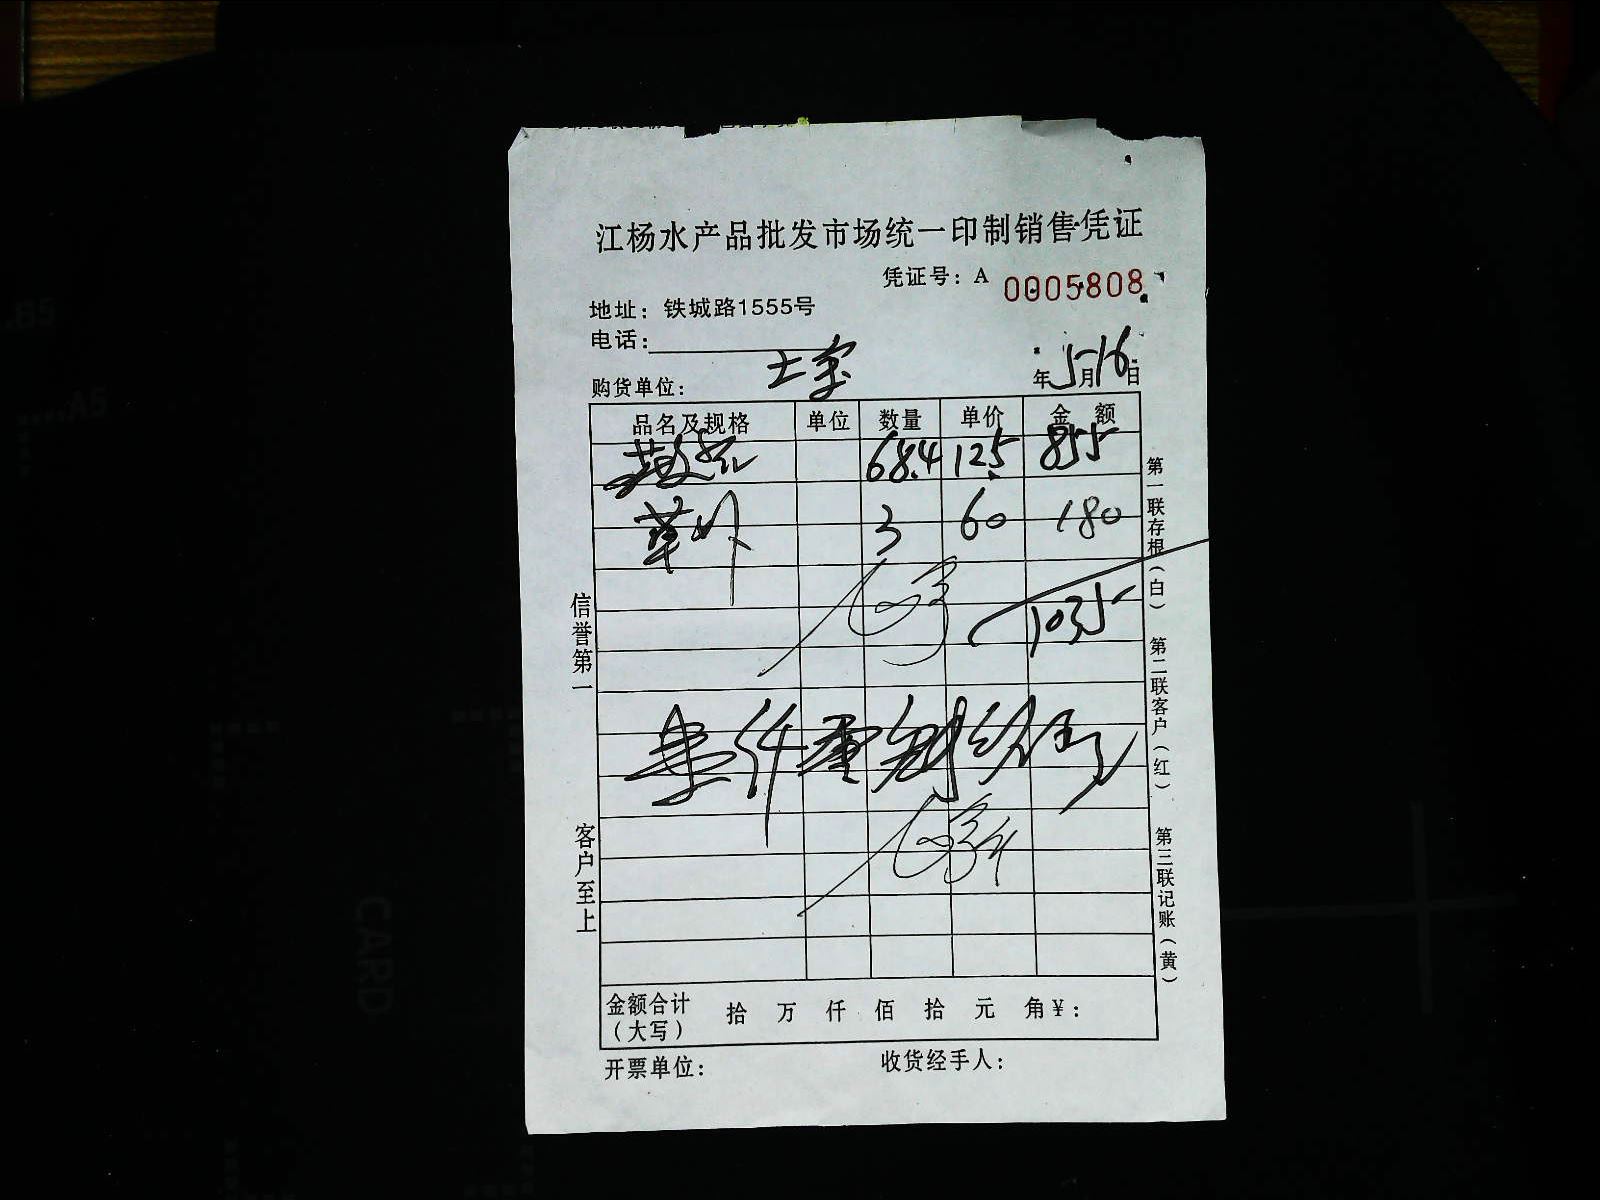 江杨水产品批发市场统一印制销售凭证
凭证号：A 0005808
地址：铁城路1555号
电话：
购货单位： 年5月16日
品名及规格 单位 数量 单价 金 额
68.4 12.5 855
草虾 3 60 180
1035
金额合计（大写） 拾 万 仟 佰 拾 元 角￥：
开票单位： 收货经手人：
信誉第一 客户至上
第一联存根（白） 第二联客户（红） 第三联记账（黄）